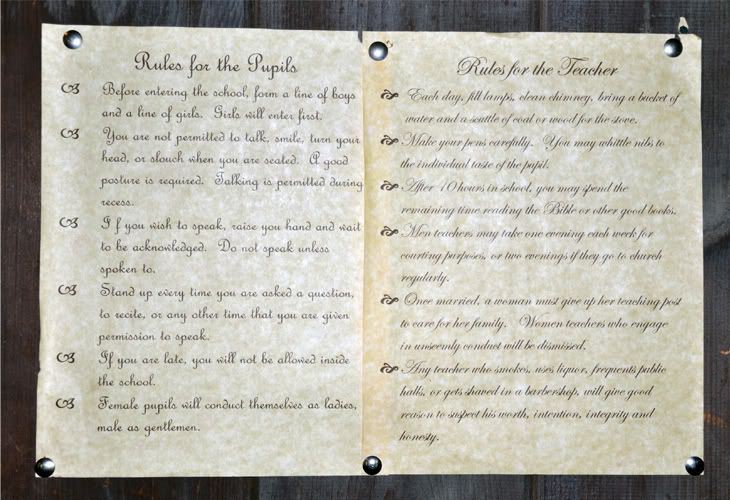 Rules for the Pupils
Before entering the school, form a line of boys
and a line of girls. Girls will enter first.
You are not permitted to talk, smile, turn your
head, or slouch when you are seated. A good
posture is required. Talking is permitted during
recess.
If you wish to speak, raise you hand and wait
to be acknowledged. Do not speak unless
spoken to.
Stand up every time you are asked a question,
to recite, or any other time that you are given
permission to speak.
If you are late, you will not be allowed inside
the school.
Female pupils will conduct themselves as ladies,
male as gentlemen.
Rules for the Teacher
Each day, fill lamps, clean chimney, bring a bucket of
water and a scuttle of coal or wood for the stove.
Make your pens carefully. You may whittle nibs to
the individual taste of the pupil.
After 10 hours in school, you may spend the
remaining time reading the Bible or other good books.
Men teachers may take one evening each week for
courting purposes, or two evenings if they go to church
regularly.
Once married, a woman must give up her teaching post
to care for her family. Women teachers who engage
in unseemly conduct will be dismissed.
Any teacher who smokes, uses liquor, frequents public
halls, or gets shaved in a barbershop, will give good
reason to suspect his worth, intention, integrity and
honesty.